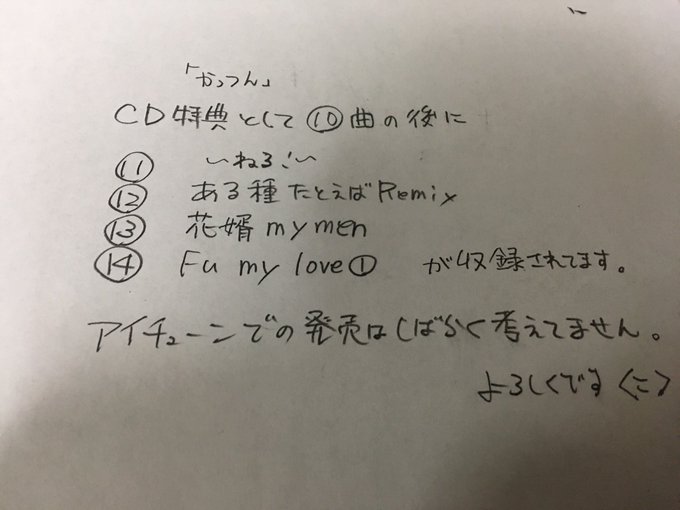 「かっつん」
CD特典として⑩曲の後に
⑪ いねるこい
⑫ ある種たとえばRemix
⑬ 花婿 my men
⑭ Fu my love① が収録されてます。
アイチューンでの発売はしばらく考えてません。
よろしくです